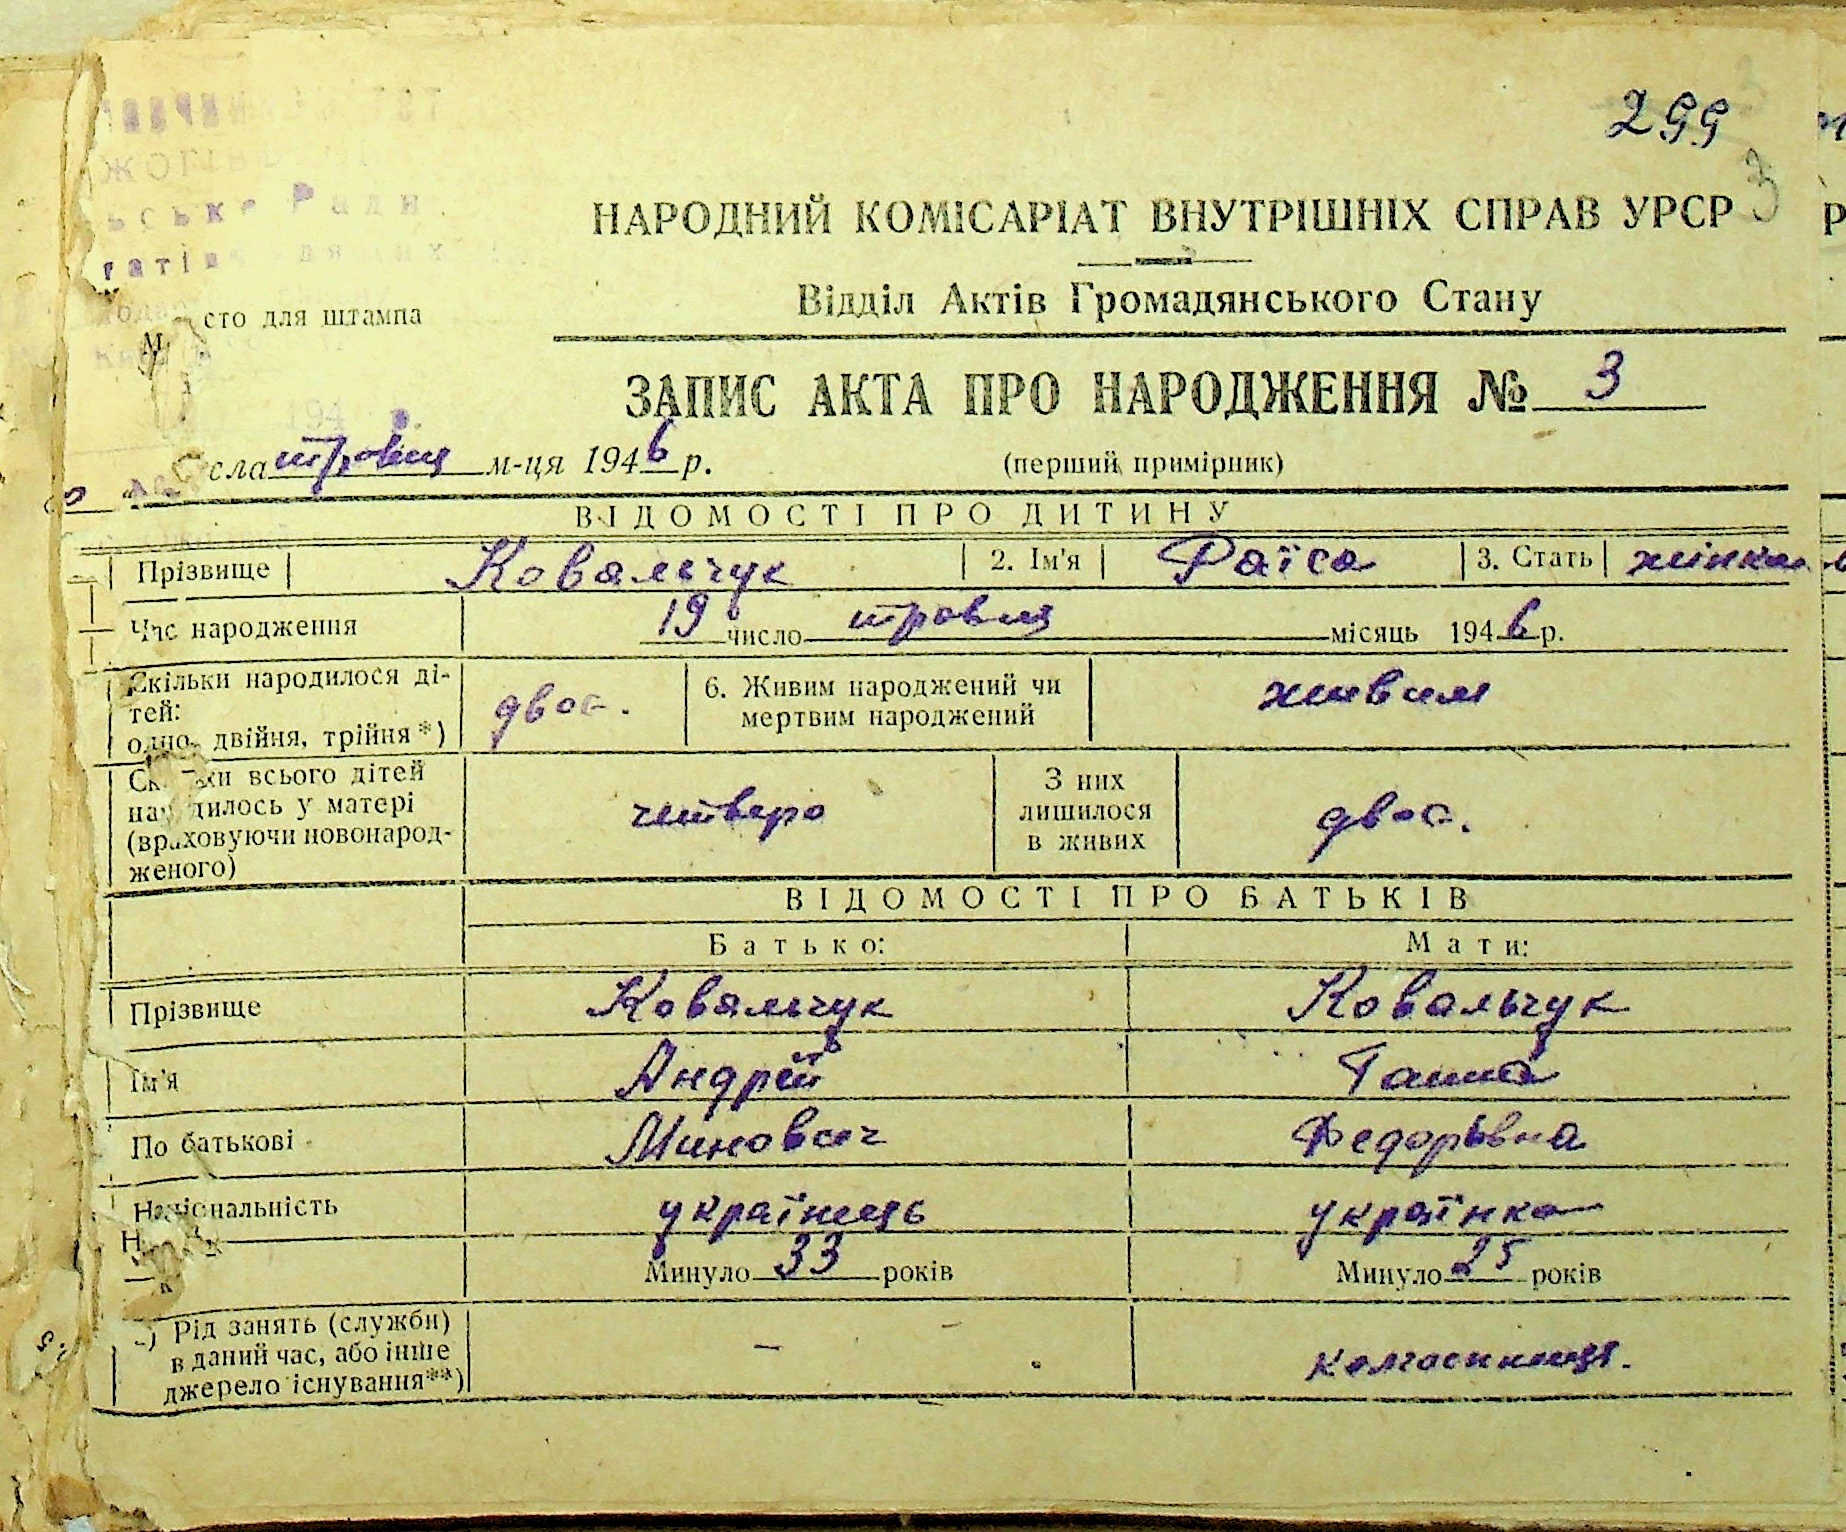 299
3
НАРОДНИЙ КОМІСАРІАТ ВНУТРІШНІХ СПРАВ УРСР
Відділ Актів Громадянського Стану
М сто для штампа
ЗАПИС АКТА ПРО НАРОДЖЕННЯ № 3
194 р.
сла травня м-ця 1946 р. (перший примірник)
ВІДОМОСТІ ПРО ДИТИНУ
Прізвище Ковальчук 2. Ім'я Раїса 3. Стать жінка
Час народження 19 число травня місяць 1946 р.
Скільки народилося ді-
тей:
одно, двійня, трійня*) двоє. 6. Живим народжений чи
мертвим народжений живим
Скільки всього дітей
народилось у матері
(враховуючи новонарод-
женого) четверо З них
лишилося
в живих двоє.
ВІДОМОСТІ ПРО БАТЬКІВ
Батько: Мати:
Прізвище Ковальчук Ковальчук
Ім'я Андрій Ганна
По батькові Минович Федорівна
Національність українець українка
Минуло 33 років Минуло 25 років
Рід занять (служби)
в даний час, або інше
джерело існування**) — колгоспниця.